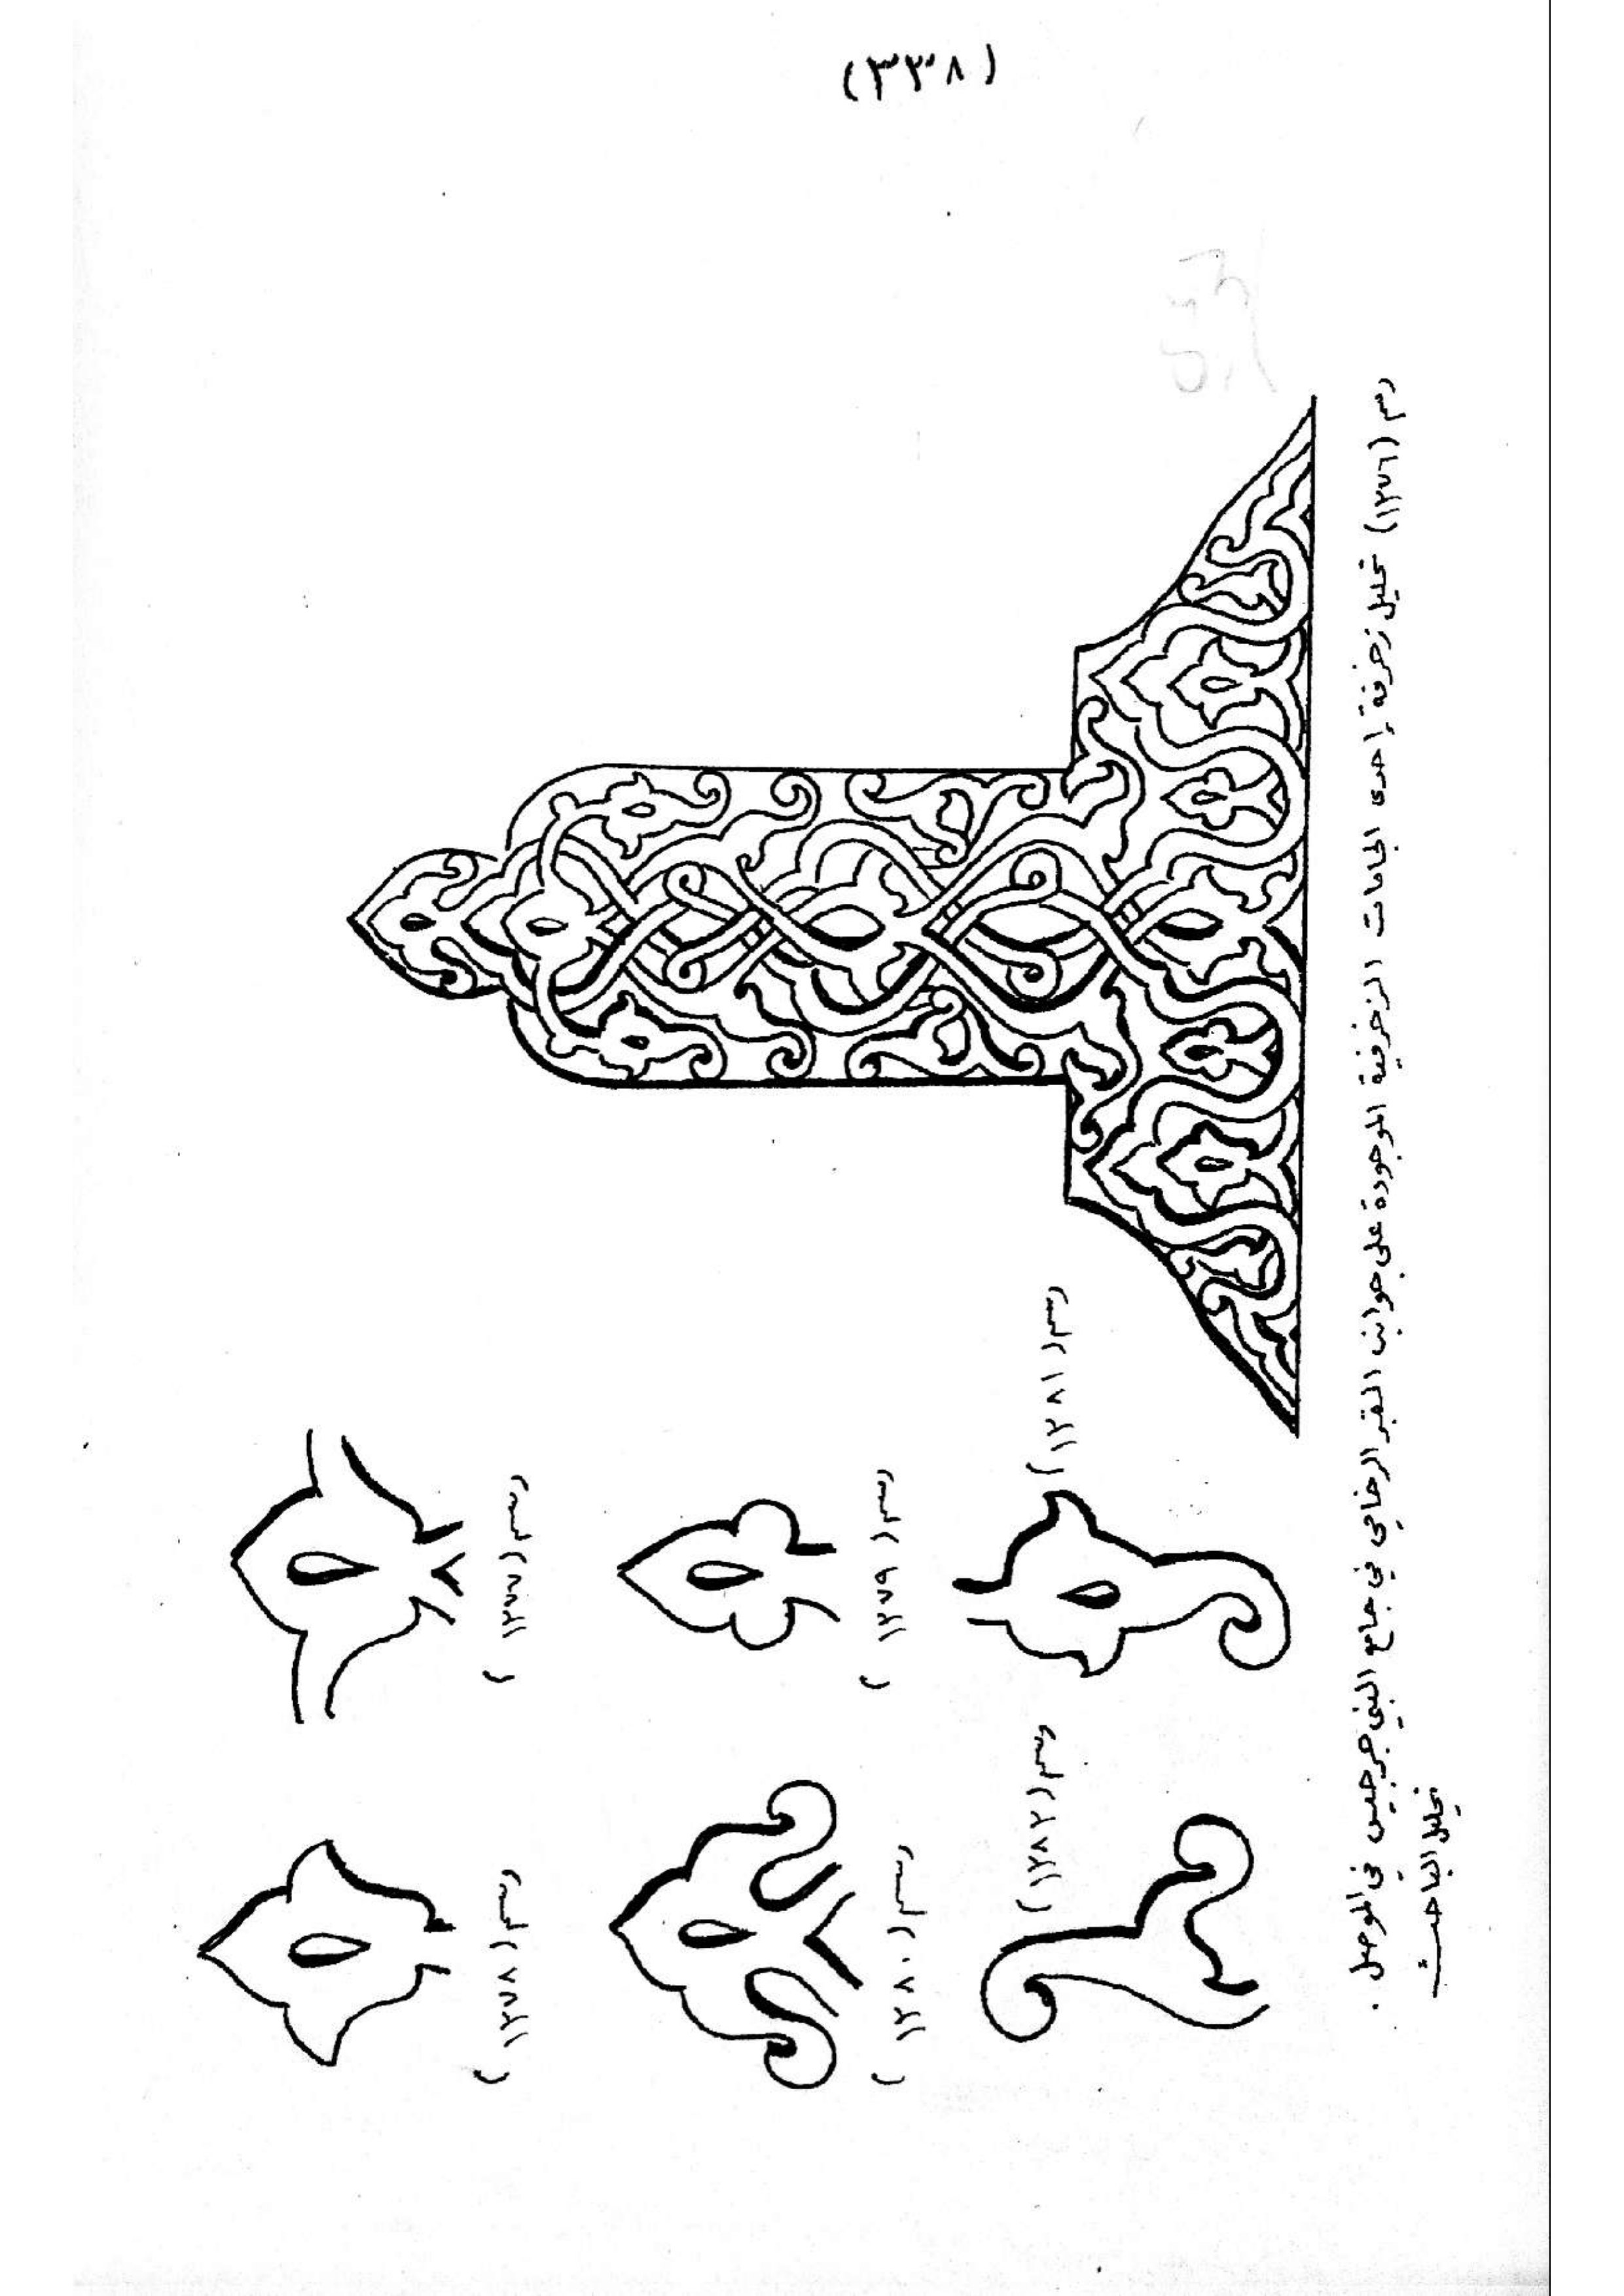 (٣٣٨)
رسم (١٢٧٧)
رسم (١٢٧٨)
رسم (١٢٧٩)
رسم (١٢٨٠)
رسم (١٢٨١)
رسم (١٢٨٢)
رسم (١٢٧٦) تحليل زخرفة إحدى الجامات الزخرفية الموجودة على جوانب القبر الرخامي في جامع النبي جرجيس في الموصل .
تحليل الباحث